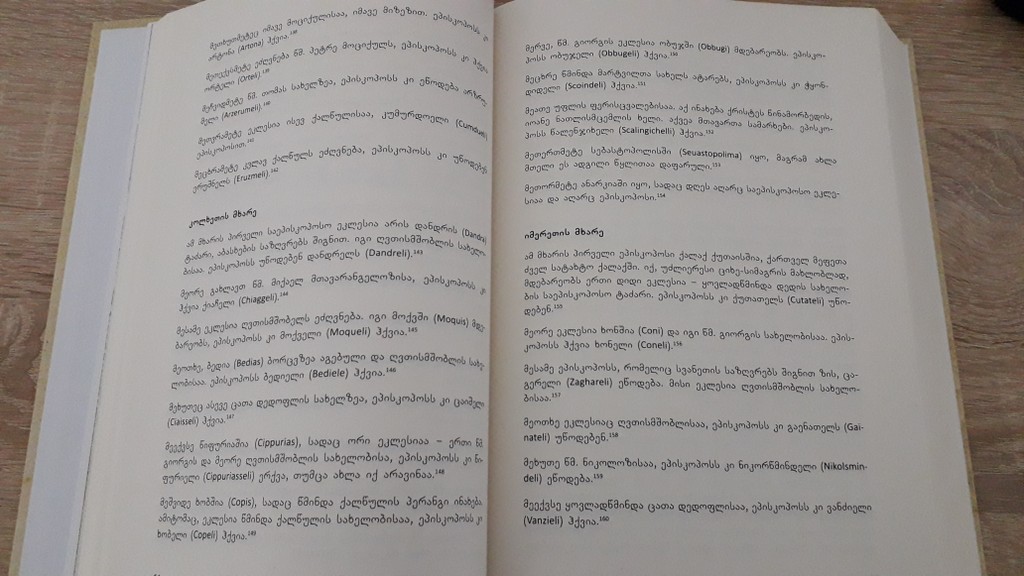 მეთხუთმეტეც იმავე მოციქულისაა, იმავე მიზეზით. ეპისკოპოსს კი
არტონა (Artona) ჰქვია.¹³⁸
მეთექვსმეტე ეძღვნება წმ. პეტრე მოციქულს, ეპისკოპოსს კი ჰქვია
ორტელი (Orteli).¹³⁹
მეჩვიდმეტე წმ. თომას სახელზეა, ეპისკოპოსს კი ეწოდება არზრუ-
მელი (Arzerumeli).¹⁴⁰
მეთვრამეტე ეკლესია ისევ ქალწულისაა, კუმურდოელი (Cumdueli)
ეპისკოპოსით.¹⁴¹
მეცხრამეტე კვლავ ქალწულს ეძღვნება, ეპისკოპოსს კი უწოდებენ
ერუშნელს (Eruzmeli).¹⁴²
კოლხეთის მხარე
ამ მხარის პირველი საეპისკოპოსო ეკლესია არის დანდრის (Dandra)
ტაძარი, აბასხების საზღვრებს შიგნით. იგი ღვთისმშობლის სახელო-
ბისაა. ეპისკოპოსს უწოდებენ დანდრელს (Dandreli).¹⁴³
მეორე გახლავთ წმ. მიქაელ მთავარანგელოზისა, ეპისკოპოსს კი
ჰქვია ქიაჩელი (Chiaggeli).¹⁴⁴
მესამე ეკლესია ღვთისმშობელს ეძღვნება. იგი მოქვში (Moquis) მდე-
ბარეობს, ეპისკოპოსს კი მოქველი (Moqueli) ჰქვია.¹⁴⁵
მეოთხე, ბედია (Bedias) ბორცვზეა აგებული და ღვთისმშობლის სახე-
ლობისაა. ეპისკოპოსს ბედიელი (Bediele) ჰქვია.¹⁴⁶
მეხუთეც ასევე ცათა დედოფლის სახელზეა, ეპისკოპოსს კი ცაიშელი
(Ciaisseli) ჰქვია.¹⁴⁷
მეექვსე წიფურიაშია (Cippurias), სადაც ორი ეკლესიაა – ერთი წმ.
გიორგის და მეორე ღვთისმშობლის სახელობისა, ეპისკოპოსს კი წი-
ფურიელი (Cippuriasseli) ერქვა, თუმცა ახლა იქ არავინაა.¹⁴⁸
მეშვიდე ხობშია (Copis), სადაც წმინდა ქალწულის პერანგი ინახება.
ამიტომაც, ეკლესია წმინდა ქალწულის სახელობისაა, ეპისკოპოსს კი
ხობელი (Copeli) ჰქვია.¹⁴⁹
მერვე, წმ. გიორგის ეკლესია ობუჯში (Obbugi) მდებარეობს. ეპისკო-
პოსს ობუჯელი (Obbugeli) ჰქვია.¹⁵⁰
მეცხრე წმინდა მარტვილთა სახელს ატარებს, ეპისკოპოსს კი ჭყონ-
დიდელი (Scoindeli) ჰქვია.¹⁵¹
მეათე უფლის ფერისცვალებისაა. აქ ინახება ქრისტეს წინამორბედის,
იოანე ნათლისმცემლის ხელი. აქვეა მთავართა სამარხები. ეპისკო-
პოსს წალენჯიხელი (Scalingichelli) ჰქვია.¹⁵²
მეთერთმეტე სებასტოპოლისში (Seuastopolima) იყო, მაგრამ ახლა
მთელი ეს ადგილი წყლითაა დაფარული.¹⁵³
მეთორმეტე ანარკიაში იყო, სადაც დღეს აღარც საეპისკოპოსო ეკლე-
სიაა და აღარც ეპისკოპოსი.¹⁵⁴
იმერეთის მხარე
ამ მხარის პირველი ეპისკოპოსი ქალაქ ქუთაისშია, ქართველ მეფეთა
ძველ სატახტო ქალაქში. იქ, უძლიერესი ციხე-სიმაგრის მახლობლად,
მდებარეობს ერთი დიდი ეკლესია – ყოვლადწმინდა დედის სახელო-
ბის საეპისკოპოსო ტაძარი. ეპისკოპოსს კი ქუთათელს (Cutateli) უწო-
დებენ.¹⁵⁵
მეორე ეკლესია ხონშია (Coni) და იგი წმ. გიორგის სახელობისაა. ეპის-
კოპოსს ჰქვია ხონელი (Coneli).¹⁵⁶
მესამე ეპისკოპოსს, რომელიც სვანეთის საზღვრებს შიგნით ზის, ცა-
გერელი (Zaghareli) ეწოდება. მისი ეკლესია ღვთისმშობლის სახელო-
ბისაა.¹⁵⁷
მეოთხე ეკლესიაც ღვთისმშობლისაა, ეპისკოპოსს კი გაენათელს (Gai-
nateli) უწოდებენ.¹⁵⁸
მეხუთე წმ. ნიკოლოზისაა, ეპისკოპოსს კი ნიკორწმინდელი (Nikolsmin-
deli) ეწოდება.¹⁵⁹
მეექვსე ყოვლადწმინდა ცათა დედოფლისაა, ეპისკოპოსს კი ვანძიელი
(Vanzieli) ჰქვია.¹⁶⁰